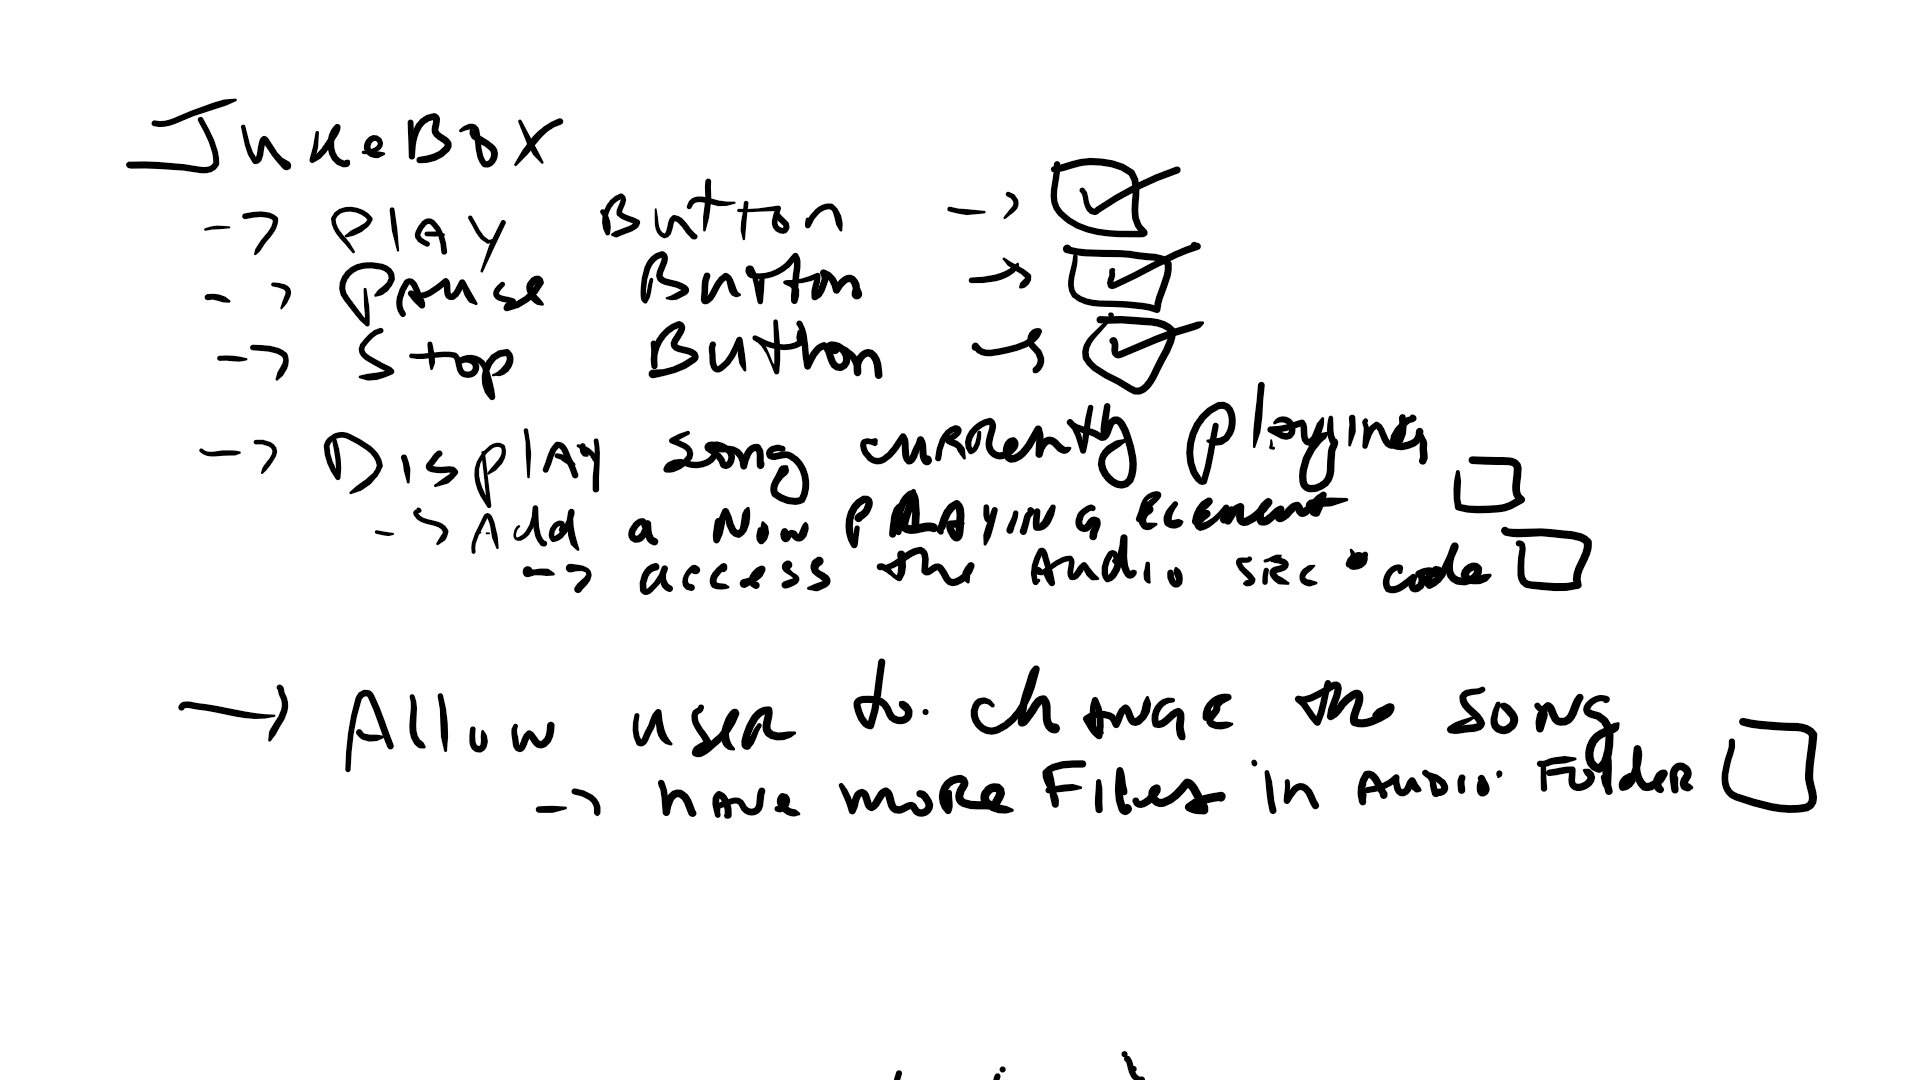 JukeBox
-> Play Button ->
-> Pause Button ->
-> Stop Button ->
-> Display song currently playing
-> Add a Now PLAYING Element
-> access the Audio src code
-> Allow user to change the song
-> have more Files in Audio Folder